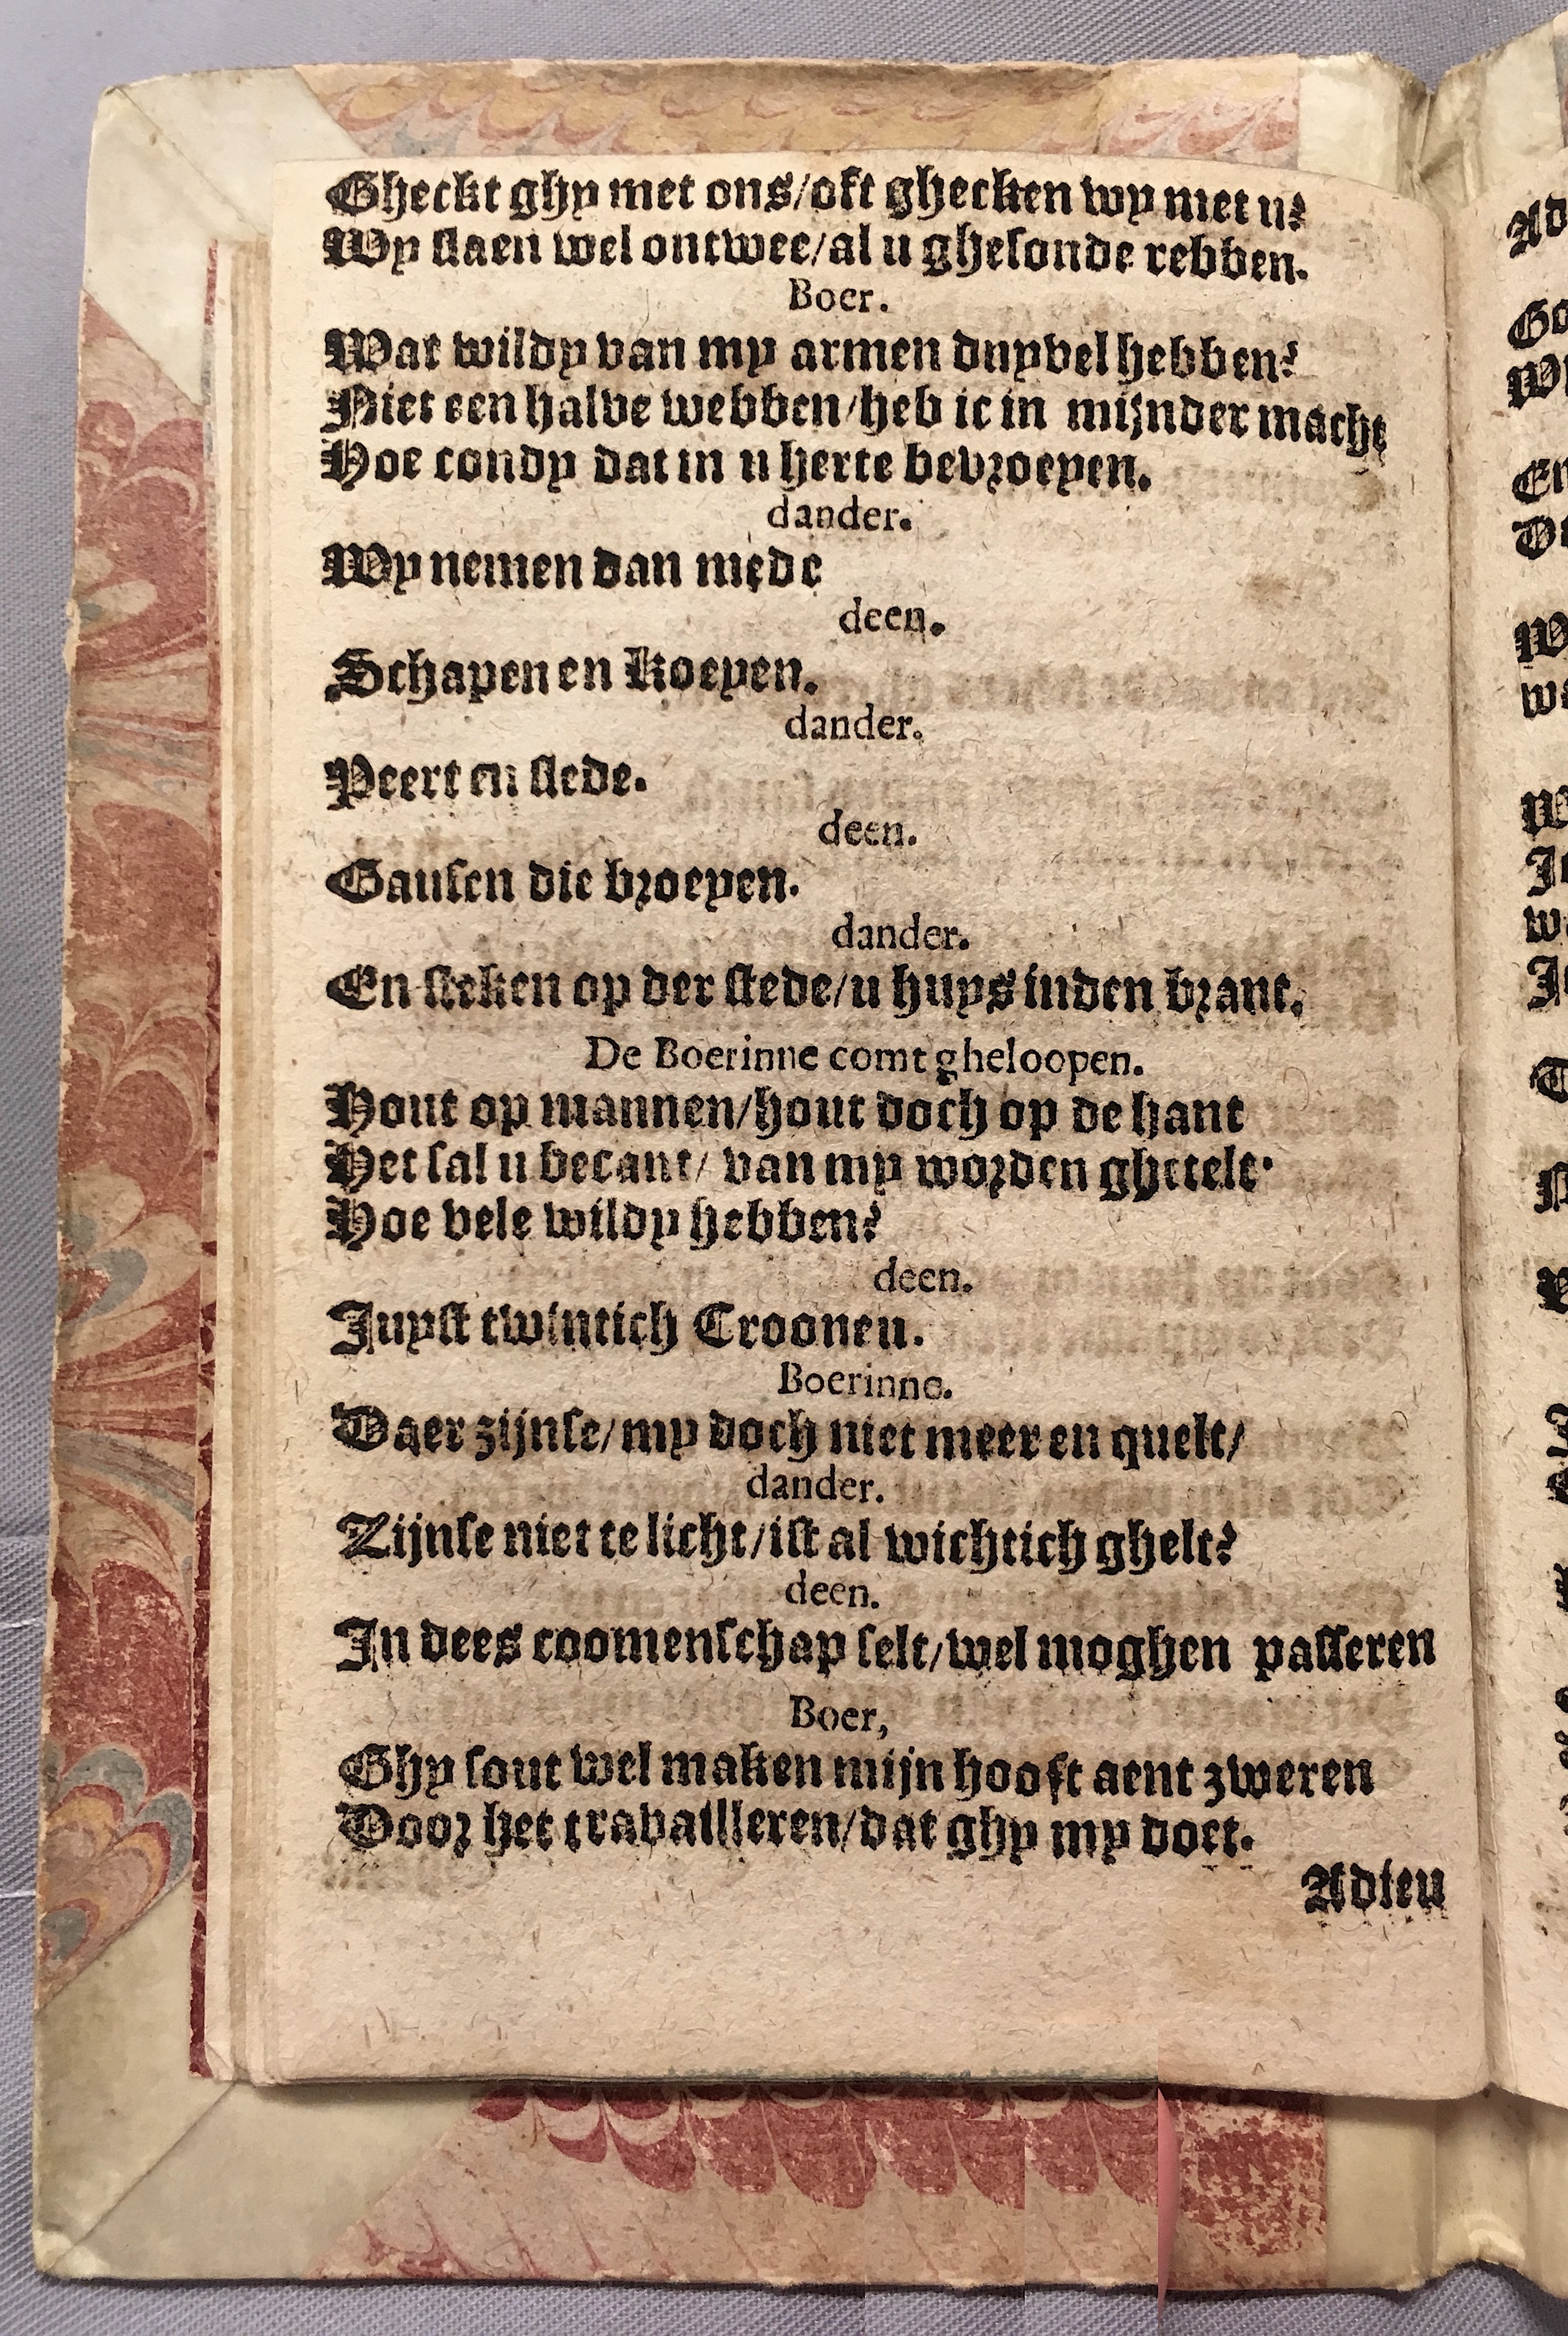 Gheckt ghy met ons/oft ghecken wy met u?
Wy slaen wel ontwee/al u ghesonde rebben.
Boer.
Wat wildy van my armen duyvel hebben?
Niet een halve webben/heb ic in mijnder macht
Hoe condy dat in u herte bevroeyen.
dander.
Wy nemen dan mede
deen.
Schapen en Koeyen.
dander.
Peert en slede.
deen.
Gansen die broeyen.
dander.
En steken op der stede/u huys inden brant.
De Boerinne comt gheloopen.
Hout op mannen/hout doch op de hant
Het sal u becant/ van my worden ghetelt.
Hoe vele wildy hebben?
deen.
Juyst twintich Croonen.
Boerinne.
Daer zijnse/my doch niet meer en quelt/
dander.
Zijnse niet te licht/ist al wichtich ghelt?
deen.
In dees coomenschap selt/wel moghen passeren
Boer,
Ghy sout wel maken mijn hooft aent zweren
Door het travailleren/dat ghy my doet.
Adieu